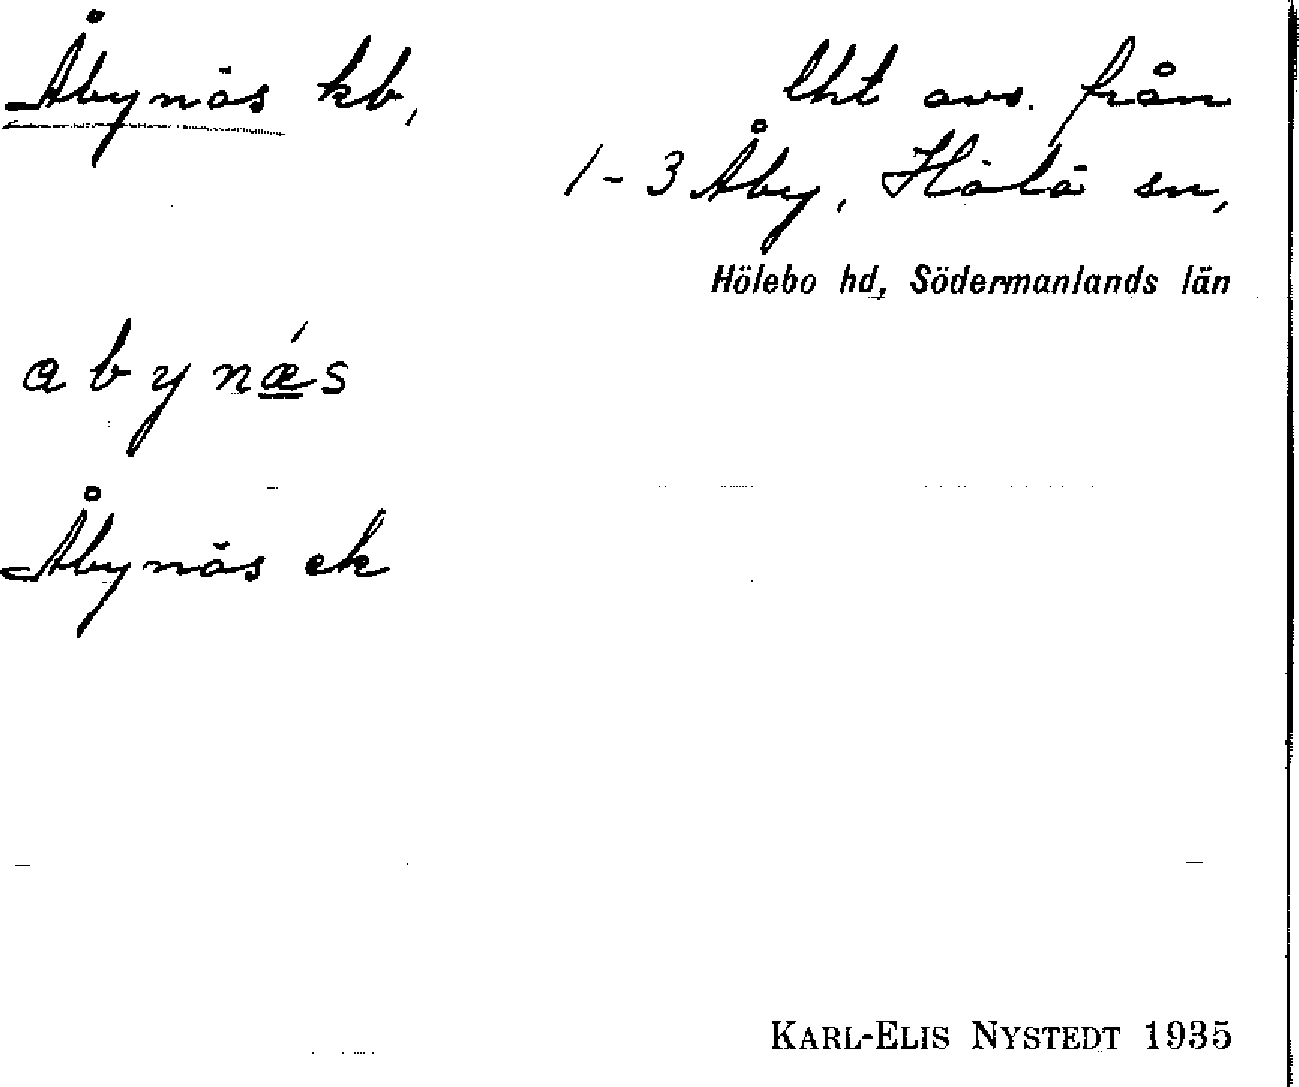 Åbynäs kb, lht avs. från
1-3 Åby, Hölö sn,
Hölebo hd, Södermanlands län
abynǽs
Åbynäs ek
KARL-ELIS NYSTEDT 1935